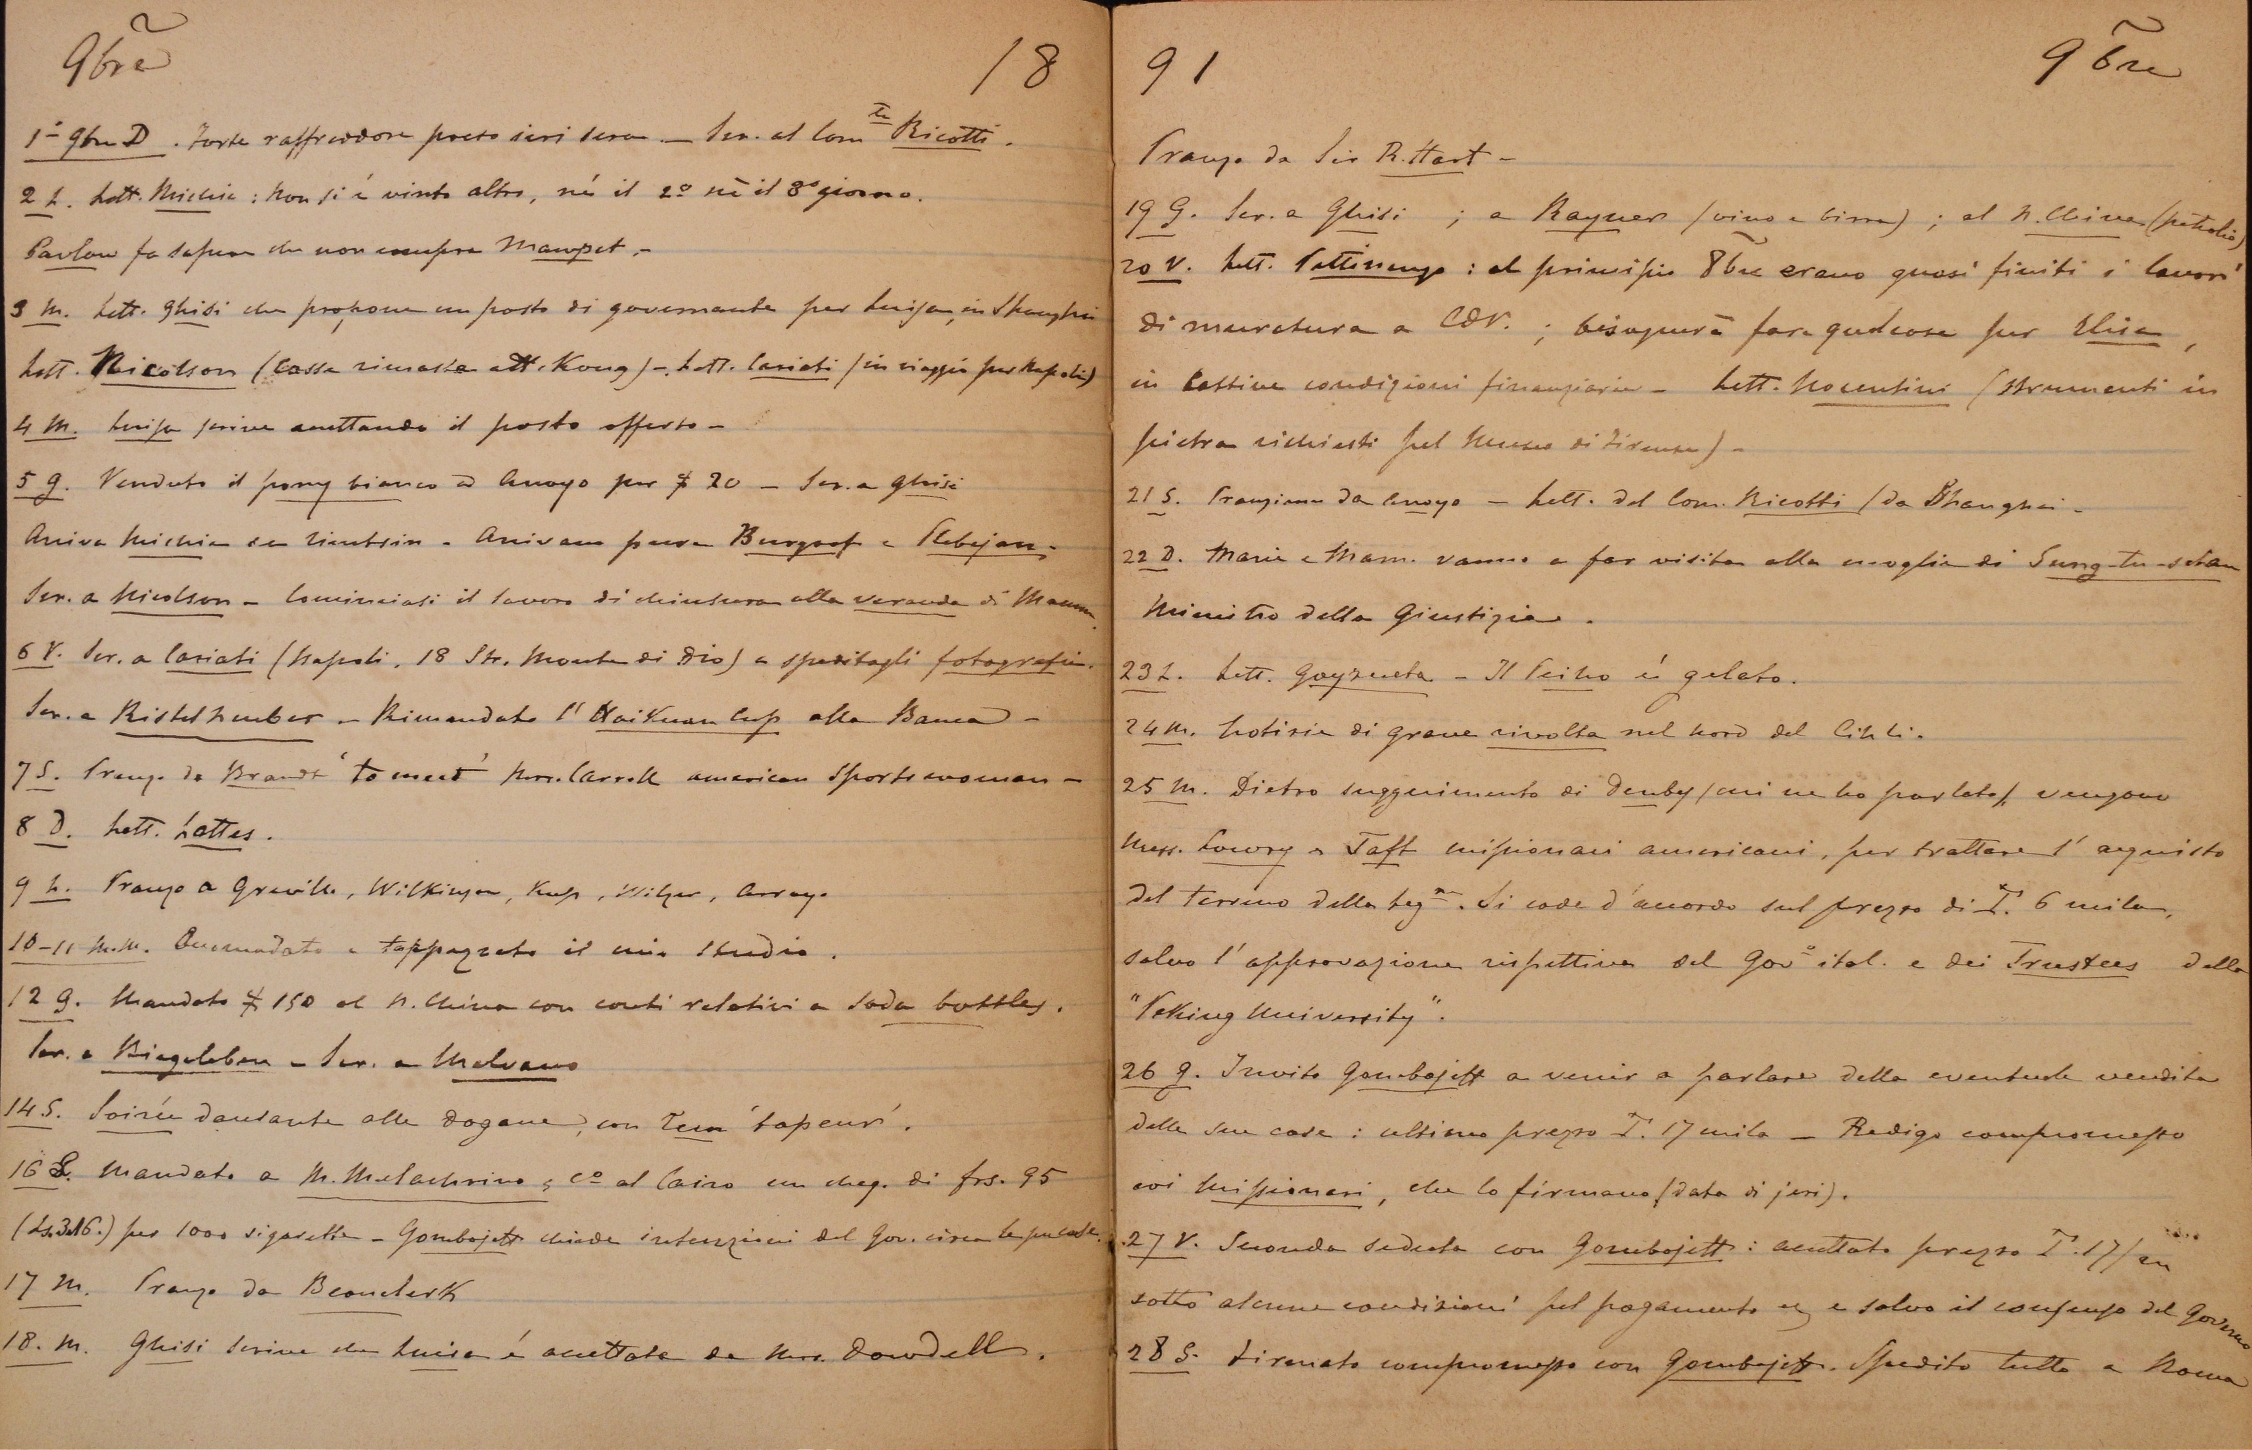 9bre
18
1º 9bre D. Forte raffreddore preso ieri sera. — Scr. al Com.te Ricotti.
2 L. Lett. Michie: non si è vinto altro, né il 2º né il 3º giorno.
Pavlow fa sapere che non compra Mawpet. -
3 M. Lett. Ghisi che propone un posto di governante per Luisa, in Shanghai
Lett. Nicolson (Cassa rimasta a H. Kong) - Lett. Cariati (in viaggio per Napoli)
4 M. Luisa scrive accettando il posto offerto -
5 G. Venduto il pony bianco ad Arroyo per $ 20 - Scr. a Ghisi
Arriva Michie da Tientsin - Arrivano pure Burgraf e
Scr. a Nicolson - Cominciasi il lavoro di chiusura alla veranda di Mamm.
6 V. Scr. a Cariati (Napoli, 18 Str. Monte di Dio) e speditogli fotografie.
Scr. a Ristelhueber - Rimandato l' Haikuan Cup alla Banca -
7 S. Pranzo da Brandt 'to meet' Mrs. Carroll american Sportswoman -
8 D. Lett. Lattes.
9 L. Pranzo a Greville, Wilkinson, , Wilzer, Arroyo
10-11 M.M. Accomodato e tappezzato il mio studio.
12 G. Mandato $ 150 al N. China con conti relativi a Soda bottles.
Scr. a Biegeleben - Scr. a Malvano
14 S. Soirée dansante alle Dogane, con 'tapeur'.
16 L. Mandato a M. Melachrino & Cº al Cairo un cheq. di frs. 95
(Ls. 3.16.) per 1000 sigarette - Gombojeff chiede intenzioni del Gov. circa le sue case.
17 M. Pranzo da Beauclerk
18. M. Ghisi scrive che Luisa è accettata da Mrs. Dowdell.
91
9bre
Pranzo da Sir R. Hart -
19 G. Scr. a Ghisi; a Rayner (vino e birra); al N. China (petrolio)
20 V. Lett. Pettinengo: al principio 8bre erano quasi finiti i lavori
di muratura a CDV.; bisognerà fare qualcosa per Elisa,
in cattive condizioni finanziarie - Lett. Nocentini (strumenti in
pietra richiesti pel Museo di Firenze) -
21 S. Pranziamo da Arroyo - Lett. del Com. Ricotti (da Shanghai -
22 D. Marie e Mam. vanno a far visita alla moglie di Sung-tu-
Ministro della Giustizia.
23 L. Lett. Goyzueta - Il Peiho è gelato.
24 M. Notizie di grave rivolta nel nord del Cihli.
25 M. Dietro suggerimento di Denby (cui ne ho parlato), vengono
Mess. Lowry e Taft missionari americani, per trattare l' acquisto
del terreno della Leg.ne. Si cade d'accordo sul prezzo di T. 6 mila,
salvo l' approvazione rispettiva del Gov.º ital. e dei Trustees della
"Peking University".
26 G. Invito Gombojeff a venir a parlare della eventuale vendita
delle sue case: ultimo prezzo T. 17 mila — Redigo compromesso
coi Missionari, che lo firmano (data di jeri).
27 V. Seconda seduta con Gombojeff: accettato prezzo T. 17/m
sotto alcune condizioni pel pagamento e salvo il consenso del Governo
28 S. Firmato compromesso con Gombojeff. Spedito tutto a Roma